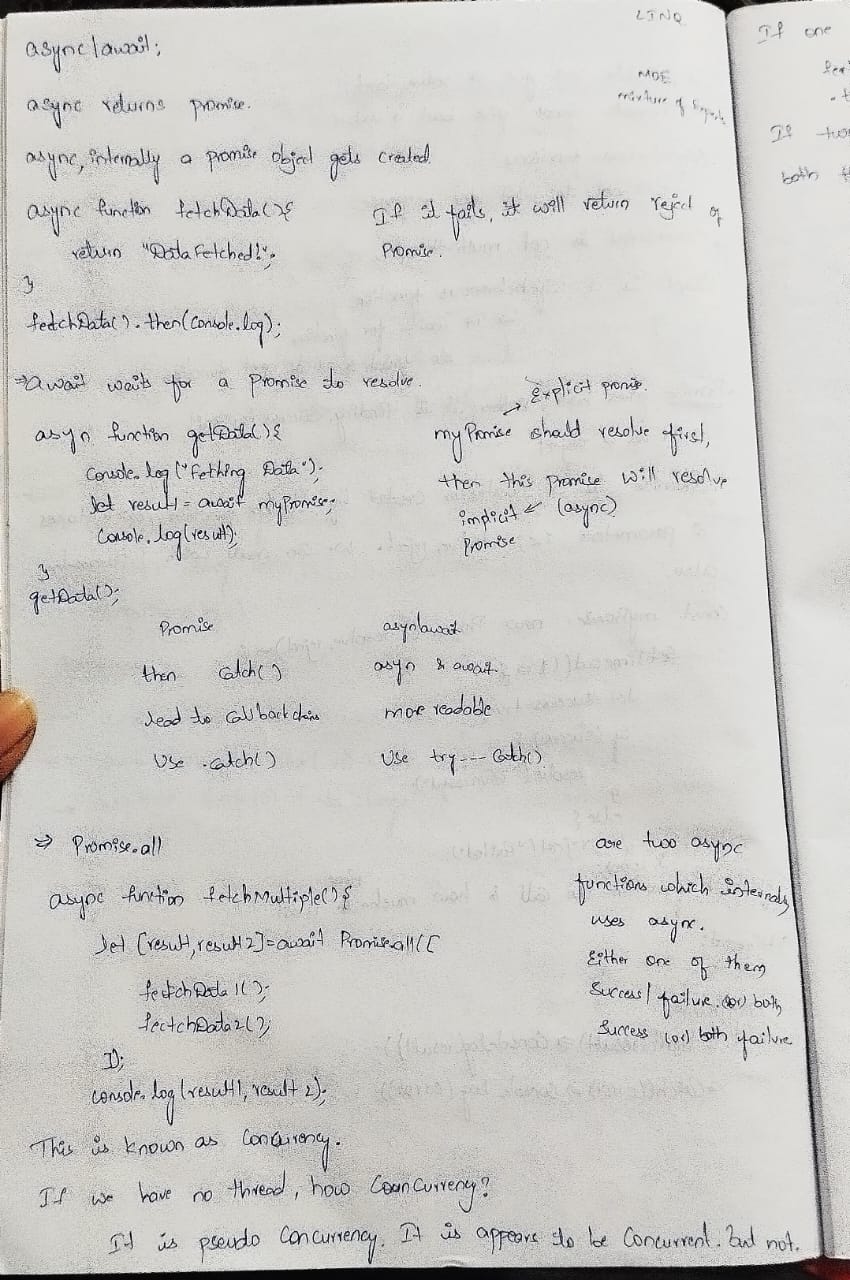 LINQ
async/await;
MOE
mixture of Experts
async returns promise.
async, internally a promise object gets created.
async function fetchData(){
return "Data Fetched!";
}
If it fails, it will return reject of
Promise.
fetchData().then(console.log);
⇒ await waits for a Promise to resolve.
asyn function getData(){
Console.log("Fething Data");
let result = await myPromise;
Console.log(result);
}
getData();
→ Explicit promis.
myPromise should resolve first,
then this promise will resolve
implicit ← (async)
Promise
Promise asyn/await
then catch() asyn & await
lead to callback chains more readable
Use .catch() Use try--- Catch()
⇒ Promise.all
async function fetchMultiple(){
let [result, result2]=await Promise.all([
fetchData1();
fectchData2();
]);
console.log(result1, result 2);
are two async
functions which internally
uses async.
Either one of them
Success/failure (or) both
Success (or) both failure
This is known as Concurrency.
If we have no thread, how Concurrency?
It is pseudo Concurrency. It is appears to be Concurrent. But not.
If one
If two
both